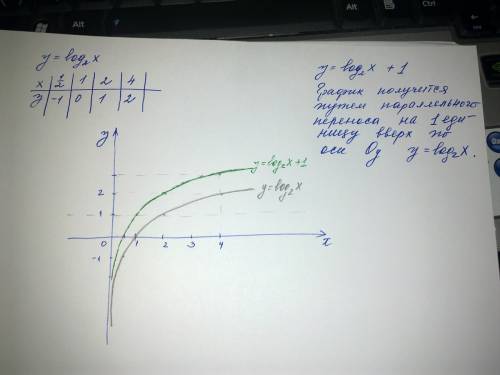 y = log₂x
x | 1/2 | 1 | 2 | 4
y | -1 | 0 | 1 | 2
y = log₂x + 1
График получится
путем параллельного
переноса на 1 еди-
ницу вверх по
оси Oy y = log₂x.
y
y = log₂x+1
y = log₂x
2
1
0 1 2 3 4 x
-1
Alt
Ctrl